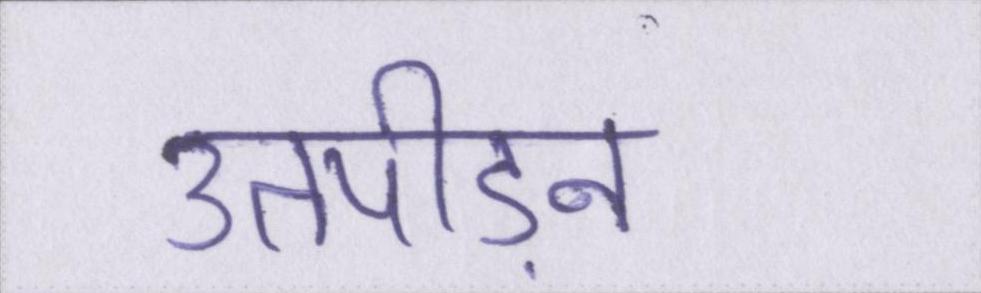 उतपीड़न